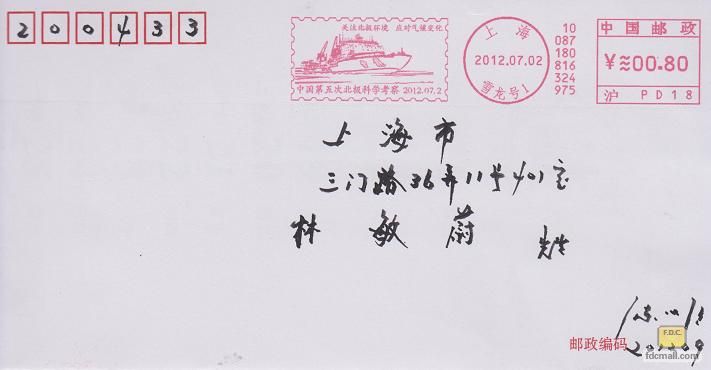 200433
关注北极环境 应对气候变化
中国第五次北极科学考察 2012.07.2
上海
2012.07.02
雪龙号1
10
087
180
816
324
975
中国邮政
¥≈00.80
沪 PD18
上海市
三门路36弄11号401室
林敏蔚 先生
邮政编码
F.D.C.
fdcmall.com